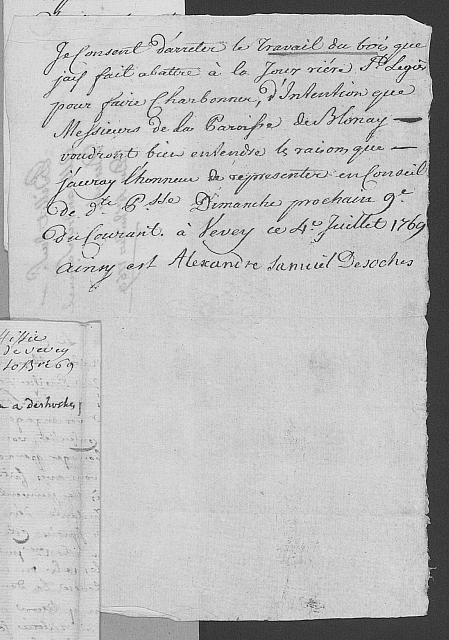 Je Consent d'arreter le travail du bois que
jay fait abattre à la Jour riére St. Legier
pour faire Charbonner, d'Intention que
Messieurs de la Paroisse de Blonay —
voudront bien entendre les raisons que —
j'auray lhonneur de representer en Conseil
de d.te P.sse Dimanche prochain 9.e
Du Courant. à Vevey ce 4.e Juillet 1769
Ainsy est Alexandre Samuel Desoches
de vevey
69
a deshoshes